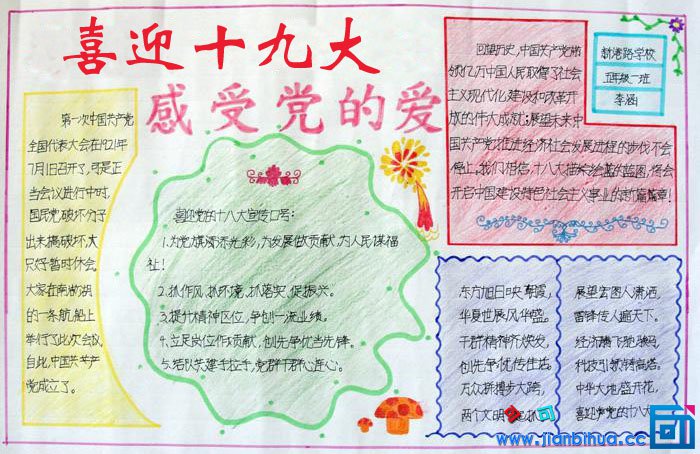 喜迎十九大
感受党的爱
第一次中国共产党
全国代表大会在1921年
7月1日召开了,可是正
当会议进行中时,
国民党破坏分子
出来搞破坏,大
只好暂时休会
大家在南湖湖
的一条航船上
举行了此次会议
自此,中国共产
党成立了。
喜迎党的十八大宣传口号:
1.为党旗添光彩,为发展做贡献,为人民谋福
祉!
2.抓作风,抓环境,抓落实,促振兴。
3.提升精神区位,争创一流业绩。
4.立足岗位作贡献,创先争优当先锋。
5.结队牵建手拉手,党群干群心连心。
回望历史,中国共产党带
领亿万中国人民取得了社会
主义现代化建设和改革开
放的伟大成就;展望未来中
国共产党推进经济社会发展进程的步伐不会
停止。我们相信,十八大描绘的蓝图,将会
开启中国建设特色社会主义事业的新篇章!
新港路学校
五年级一班
李涵
东方旭日映朝霞,
华夏世展风华盛。
干群精神齐焕发,
创先争优传佳话。
万众拼搏步大跨,
两个文明 抓
展望宏图人潇洒,
雷锋传人遍天下。
经济腾飞驰骏马,
科技引领铸高塔。
中华大地盛开花,
喜迎党的十八大
www.jianbihua.cc